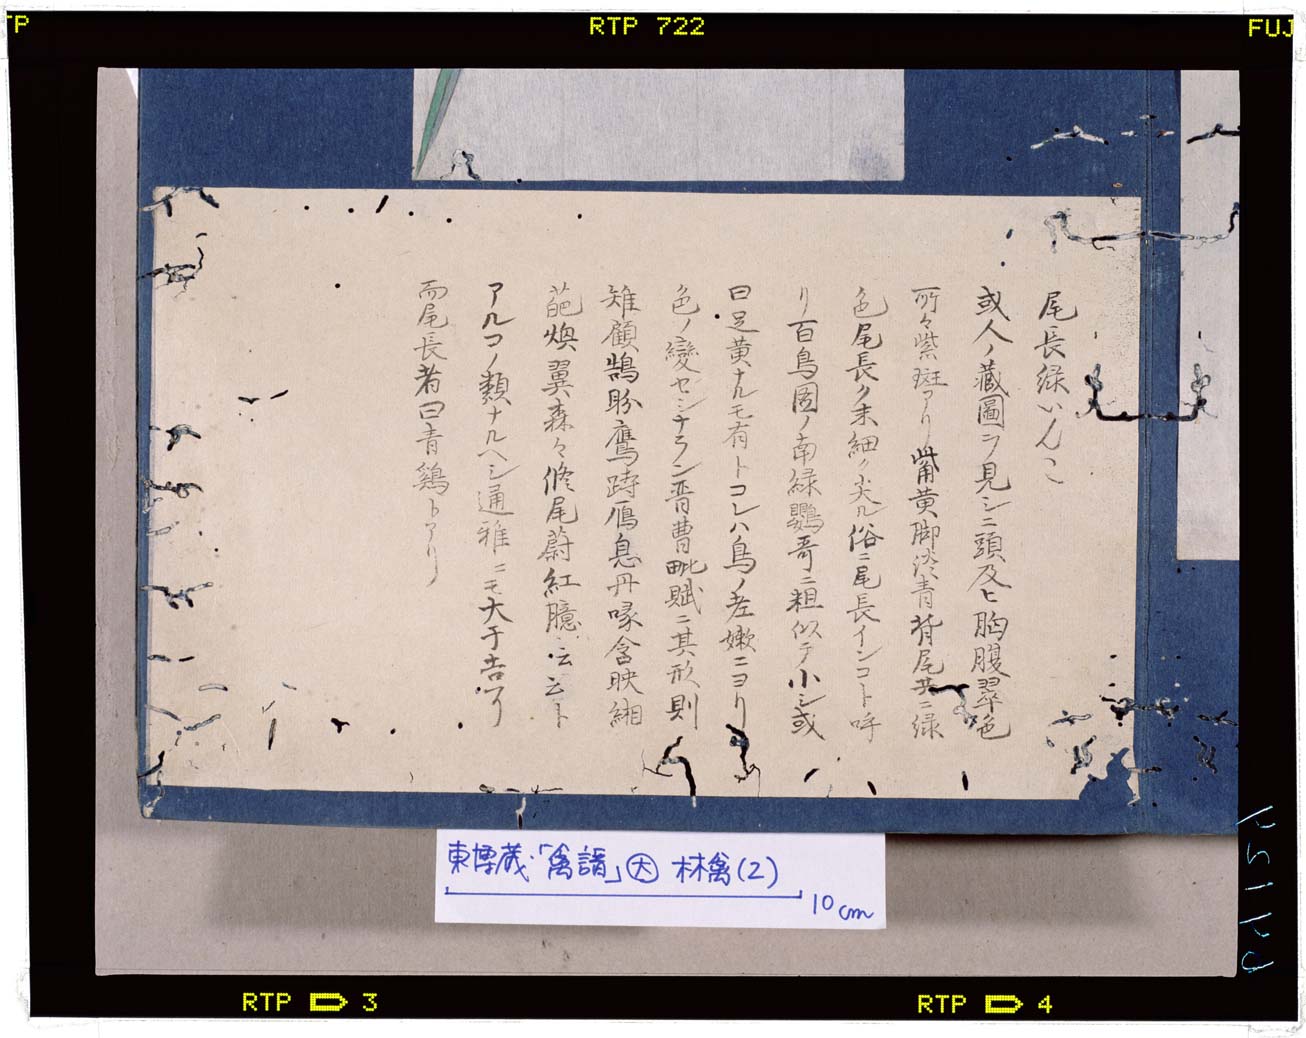 RTP 722
FUJ
尾長緑いんこ
或人ノ藏圖ヲ見シニ頭及ヒ胸腹翠色
所々紫斑アリ觜黄脚淡青背尾共ニ緑
色尾長ク末細ク尖ル俗ニ尾長インコト呼
リ百鳥圖ノ南緑鸚哥ニ粗似テ小シ或
曰足黄ナルモ有トコレハ鳥ノ老嫩ニヨリ
色ノ變セシナラン晋曹毗賦ニ其形則
雉顧鵠盼鷹跱鴈息丹喙含映緗
葩煥翼森々脩尾蔚紅臆云云ト
アルコノ類ナルヘシ通雅ニモ大于吉了
而尾長者曰青鷄トアリ
東博蔵「禽譜」大 林禽(2)
10cm
RTP 3
RTP 4